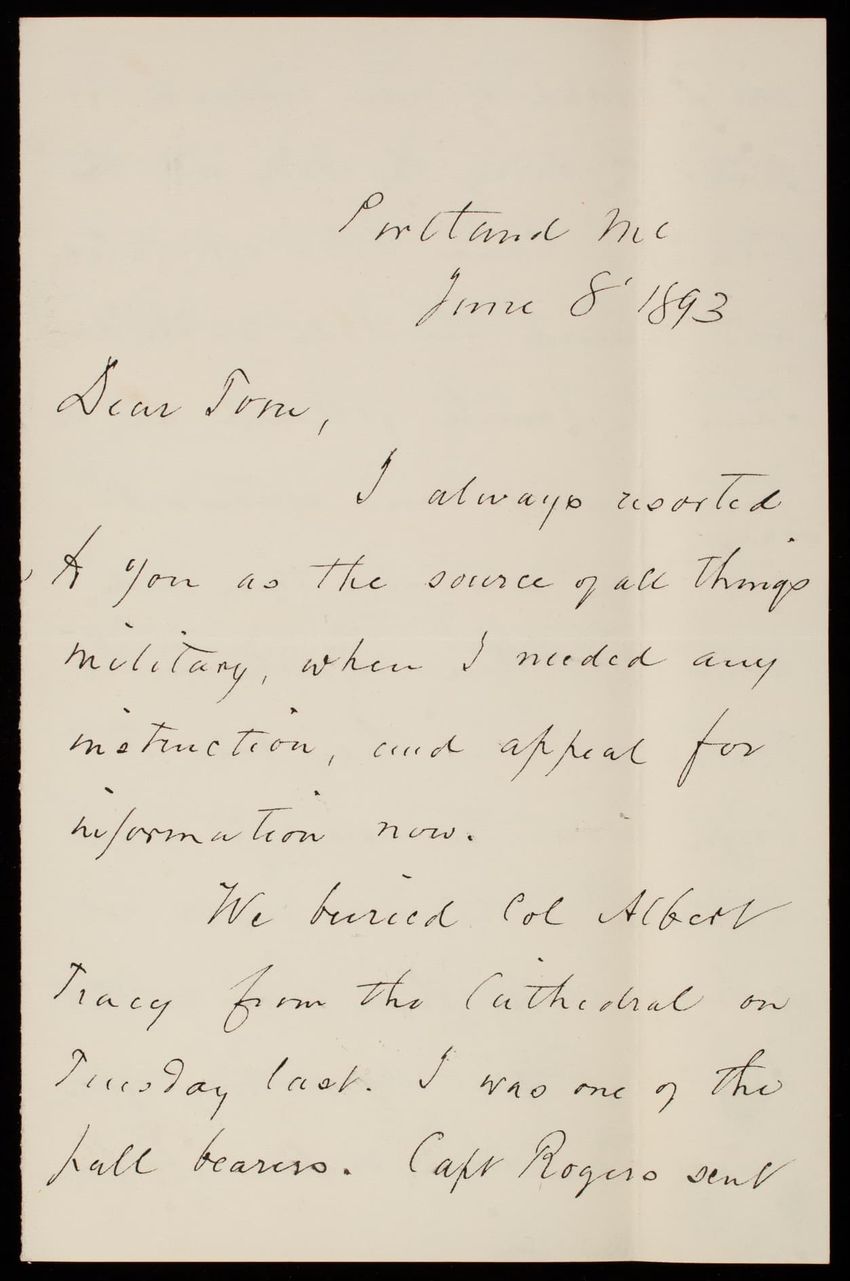 Portland Me
June 8' 1893
Dear Tom,
I always resorted
to you as the source of all things
military, when I needed any
instruction, and appeal for
information now.
We buried Col Albert
Tracy from the Cathedral on
Tuesday last. I was one of the
pall bearers. Capt Rogers sent